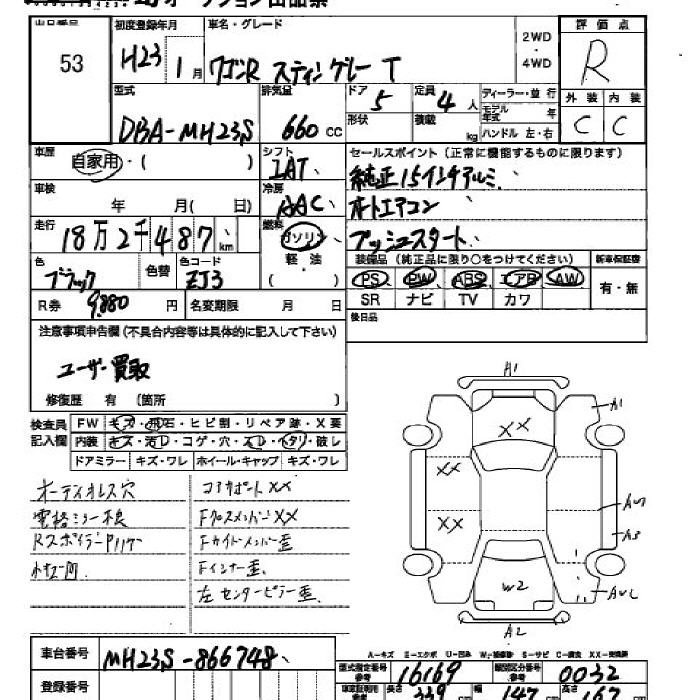 オークション出品票
出品番号 53
初度登録年月 H23 1月
車名・グレード ワゴンR スティングレー T
2WD・4WD
評価点 R
外装 C 内装 C
型式 DBA-MH23S
排気量 660 cc
ドア 5 形状
定員 4人 積載 kg
ディーラー・並行
モデル年式 年
ハンドル 左・右
車歴 自家用・( )
シフト IAT
冷房 AAC
車検 年 月( 日)
走行 18万2千487km
燃料 ガソリン 軽・油
セールスポイント(正常に機能するものに限ります)
純正15インチアルミ
オートエアコン
プッシュスタート
色 ブラック 色替 色コード ZJ3
装備品(純正品に限り○をつけてください) 新車保証書
PS PW ABS エアB AW 有・無
SR ナビ TV カワ
R券 9,880円 名変期限 月 日
後日品
注意事項申告欄(不具合内容等は具体的に記入して下さい)
ユーザー買取
修復歴 有(箇所 )
検査員記入欄
FW キズ・飛石・ヒビ割・リペア跡・X要
内装 キズ・汚レ・コゲ・穴・スレ・ヘタリ・破レ
ドアミラー キズ・ワレ ホイール・キャップ キズ・ワレ
オーディオレス穴
電格ミラー不良
Rスポイラー
コアサポートXX
FクロスメンバーXX
Fサイドメンバー歪
Fインナー歪
左センターピラー歪
A1
A1
XX
XX
XX
A3
W2
A2
A-キズ E-エクボ U-凹み W-補修跡 S-サビ C-腐食 XX-交換済
車台番号 MH23S-866748
型式指定番号 16169
類別区分番号 0032
登録番号
長さ 339 cm 幅 147 cm 高さ